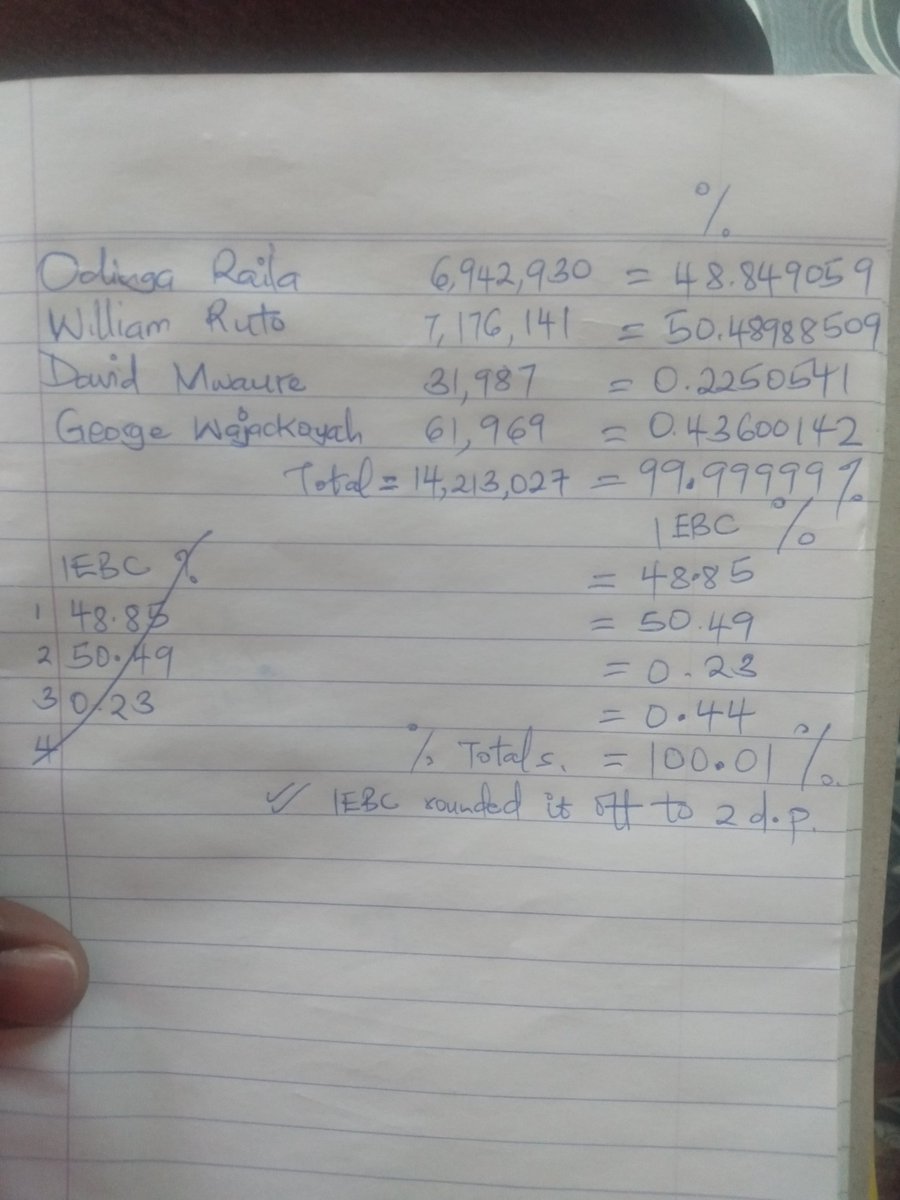 %
Odinga Raila 6,942,930 = 48.849059
William Ruto 7,176,141 = 50.48988509
David Mwaure 31,987 = 0.2250541
George Wajackoyah 61,969 = 0.43600142
Total = 14,213,027 = 99.99999%
IEBC %
= 48.85
= 50.49
= 0.23
= 0.44
% Totals. = 100.01%.
✓✓ IEBC rounded it off to 2 d.p.
IEBC %
1 48.85
2 50.49
3 0.23
4